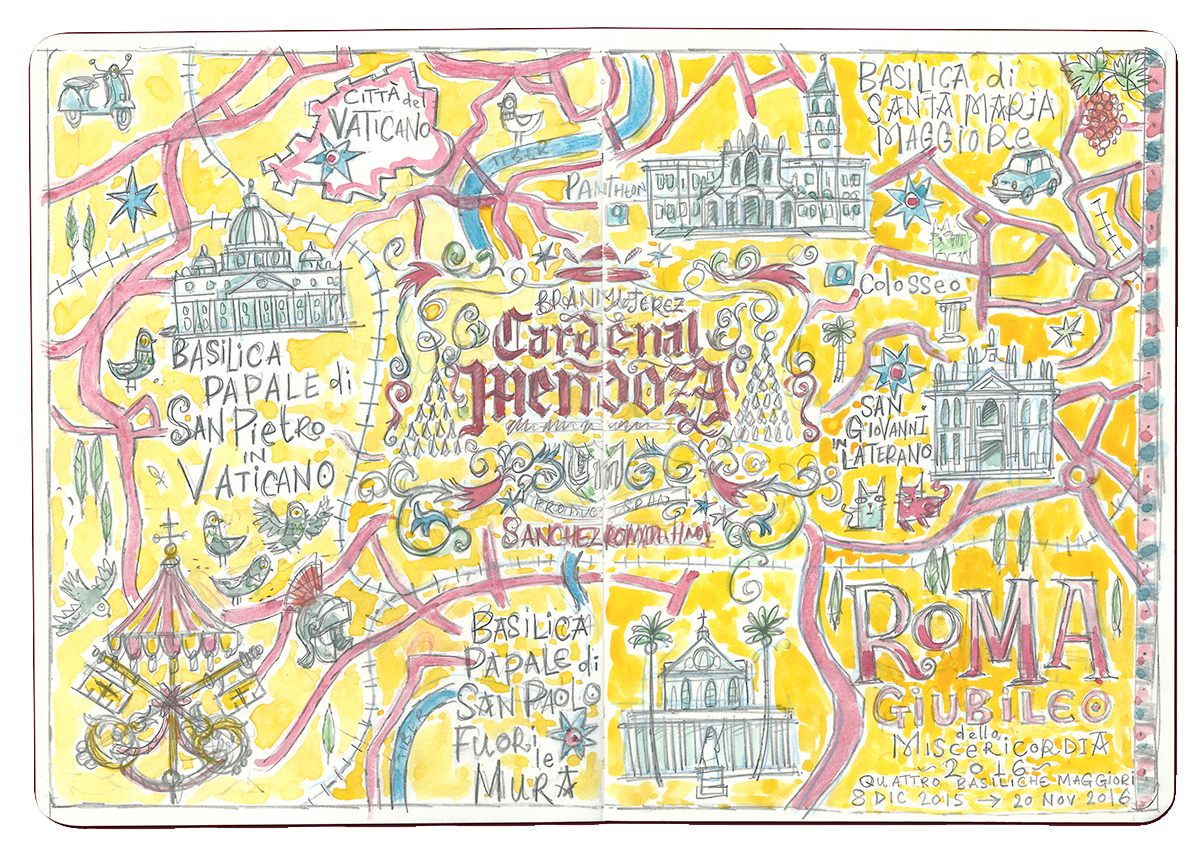 CITTÀ del
VATICANO
TIBER
PANTHEON
BASILICA di
SANTA MARIA
MAGGIORE
COLOSSEO
BASILICA
PAPALE di
SAN PIETRO
IN
VATICANO
BRANDY de JEREZ
Cardenal
Mendoza
SANCHEZ ROMATE HNOS
SAN
GIOVANNI
IN
LATERANO
BASILICA
PAPALE di
SAN PAOLO
FUORI
le
MURA
TIBER
ROMA
GIUBILEO
della
MISCERICORDIA
~ 2016 ~
QUATTRO BASILICHE MAGGIORI
8 DIC 2015 → 20 NOV 2016